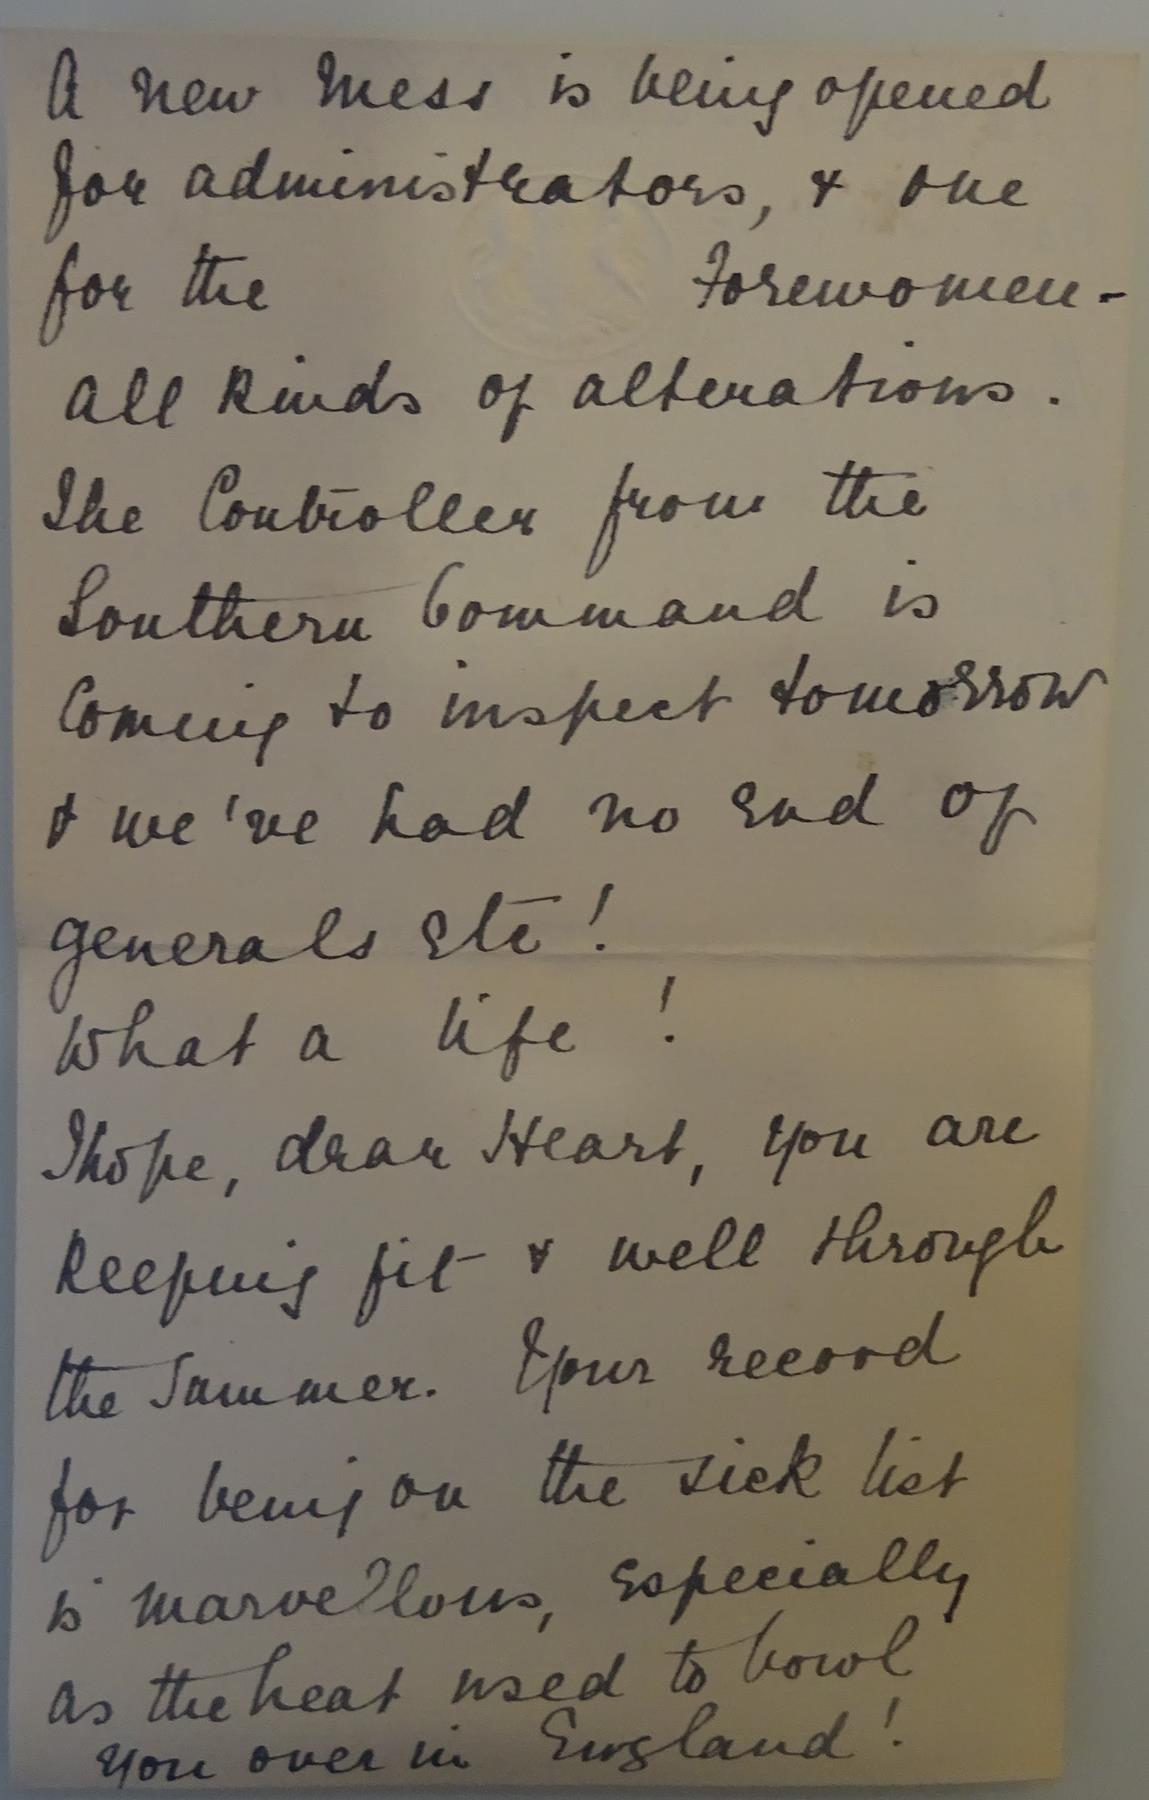 A new Mess is being opened
for administrators, & one
for the Forewomen-
all kinds of alterations.
The Controller from the
Southern Command is
Coming to inspect tomorrow
& we've had no end of
generals etc!
What a life!
I hope, dear Heart, you are
keeping fit & well through
the Summer. Your record
for being on the sick list
is marvellous, especially
as the heat used to bowl
you over in England!